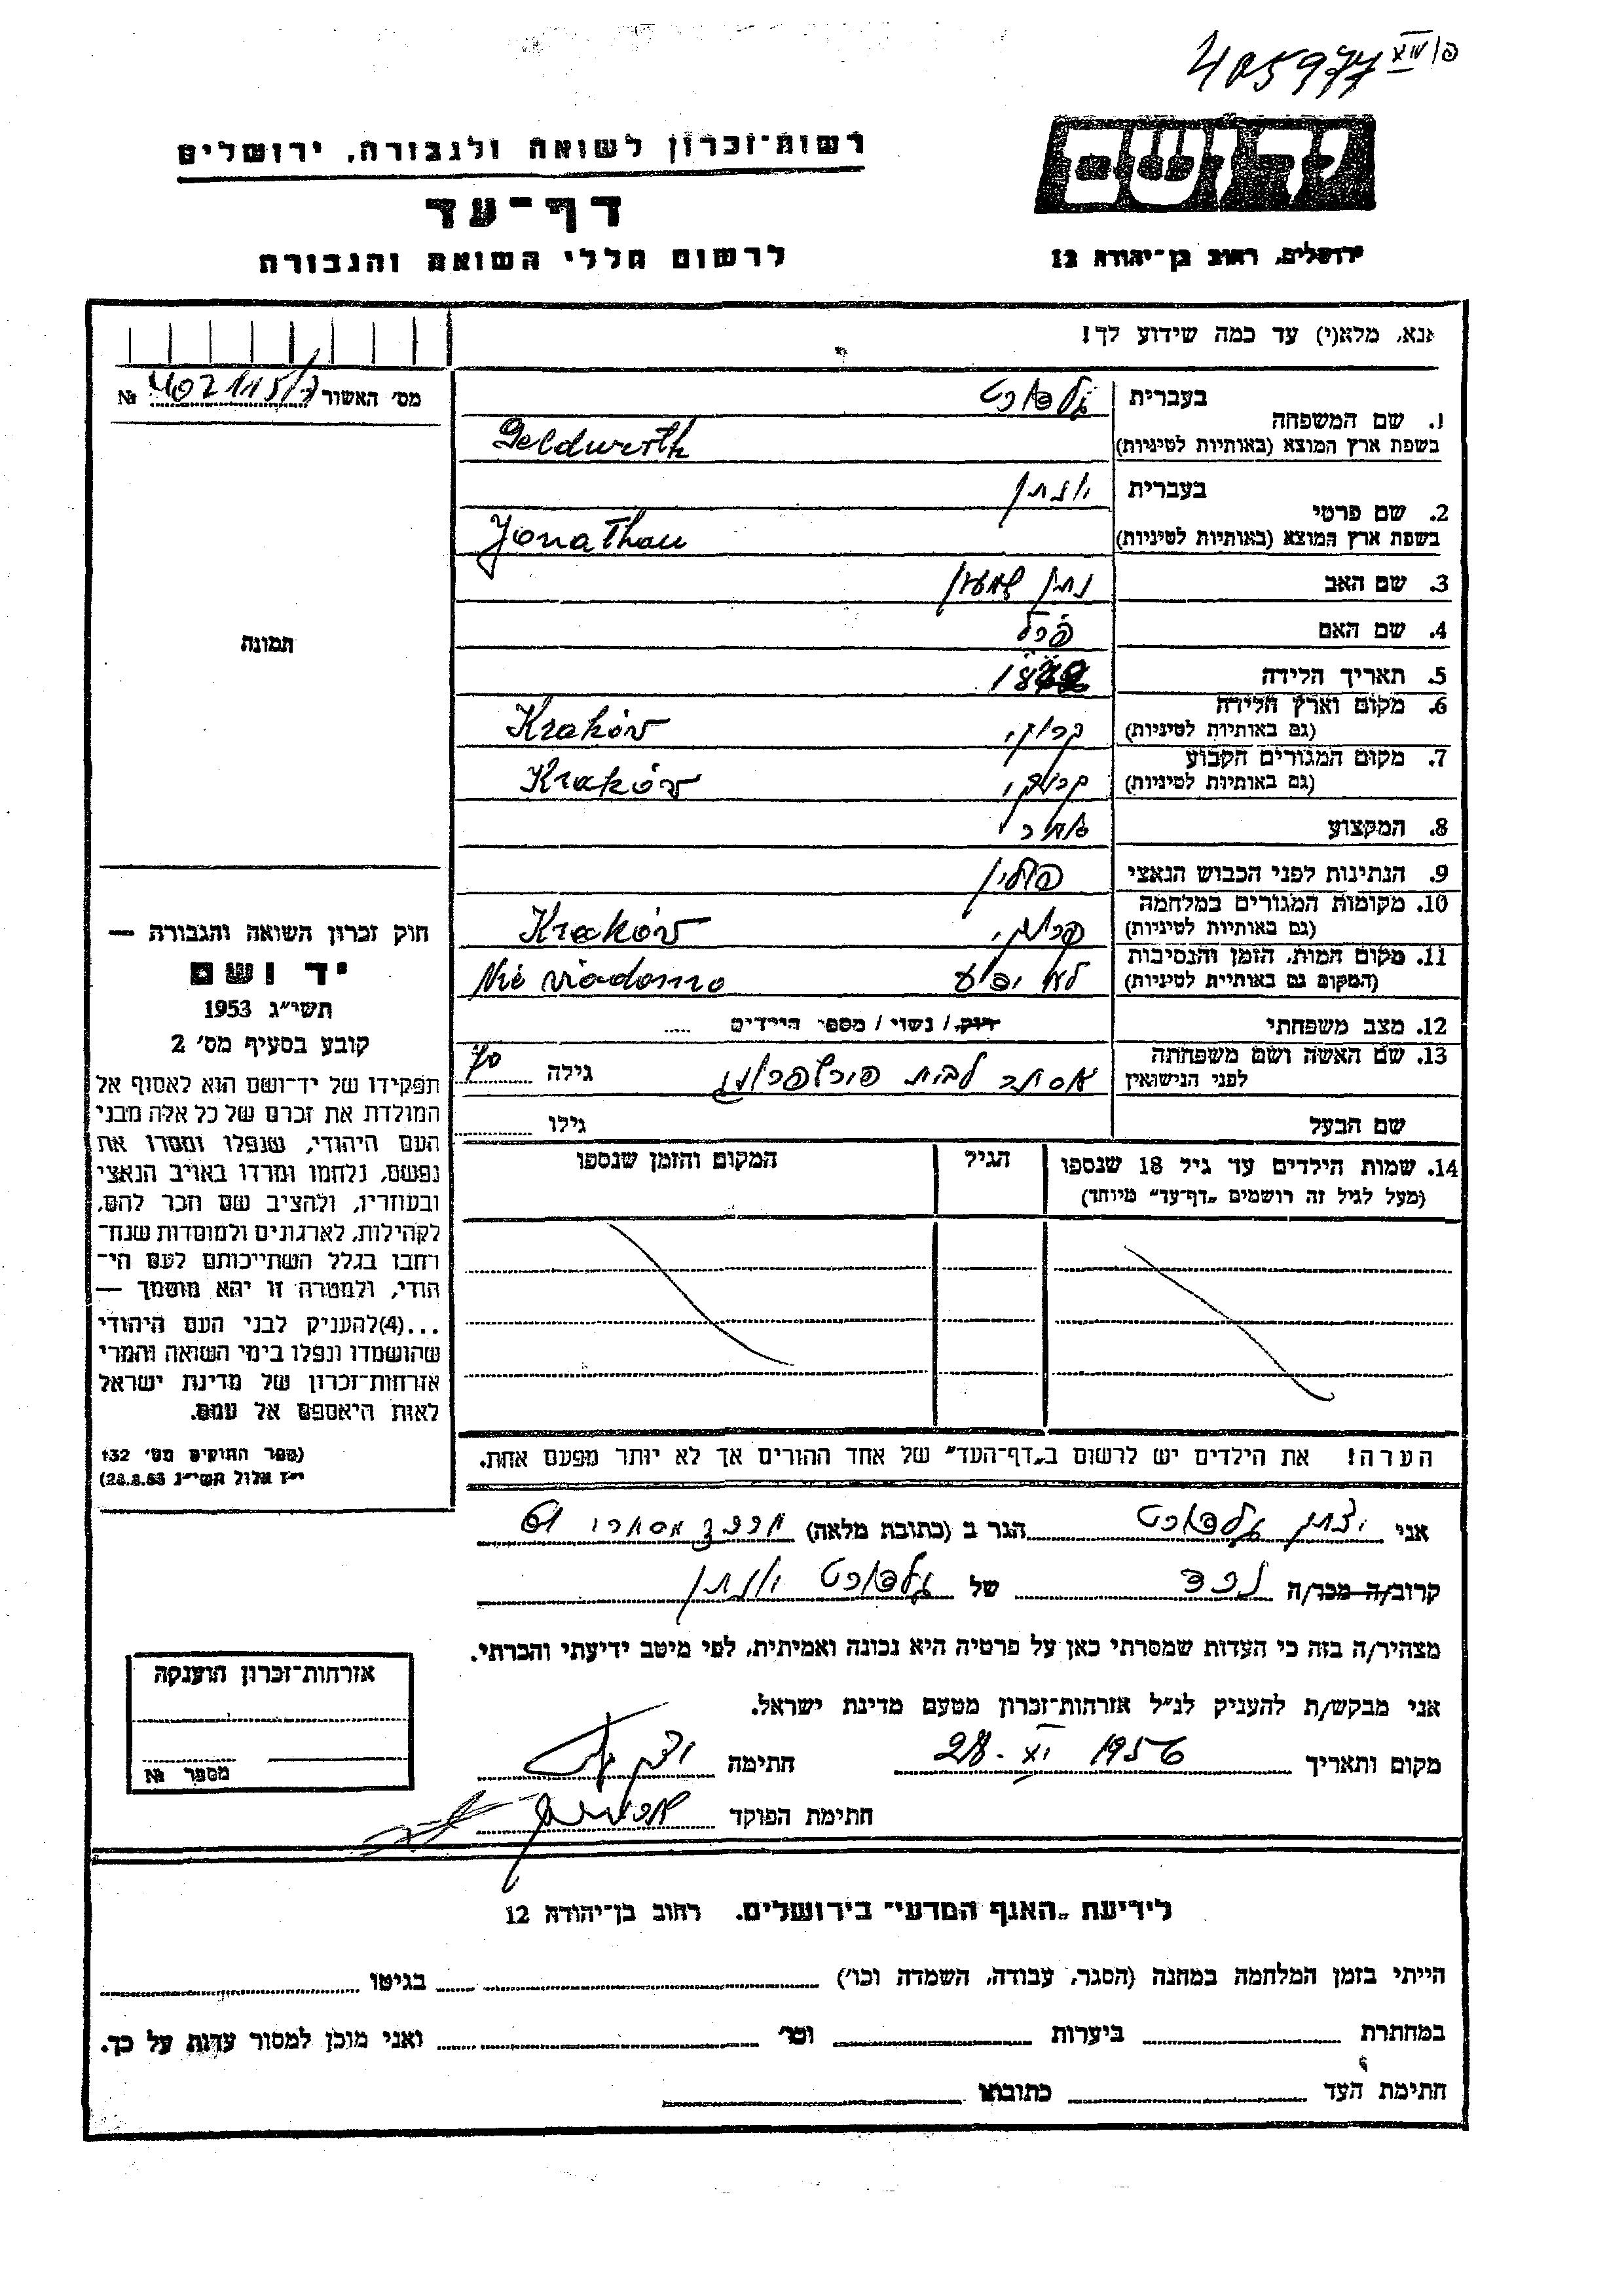 405977 XIV/פ
יד ושם
רשות־זכרון לשואה ולגבורה, ירושלים
דף־עד
לרשום חללי השואה והגבורה
ירושלים, רחוב בן־יהודה 12
אנא, מלא(י) עד כמה שידוע לך!
מס׳ האשור 402115/7 №
תמונה
חוק זכרון השואה והגבורה —
יד ושם
תשי״ג 1953
קובע בסעיף מס׳ 2
תפקידו של יד־ושם הוא לאסוף אל
המולדת את זכרם של כל אלה מבני
העם היהודי, שנפלו ומסרו את
נפשם, נלחמו ומרדו באויב הנאצי
ובעוזריו, ולהציב שם וזכר להם,
לקהילות, לארגונים ולמוסדות שנח־
רחבו בגלל השתייכותם לעם הי־
הודי, ולמטרה זו יהא מוסמך —
...(4)להעניק לבני העם היהודי
שהושמדו ונפלו בימי השואה והמרי
אזרחות־זכרון של מדינת ישראל
לאות היאספם אל עמם.
(ספר החוקים מס׳ 132
י״ז אלול תשי״ג 28.8.53)
1. שם המשפחה
בעברית
בשפת ארץ המוצא (באותיות לטיניות) Geldwerth
2. שם פרטי
בעברית יונתן
בשפת ארץ המוצא (באותיות לטיניות) Jonathan
3. שם האב נתן שמעון
4. שם האם פרל
5. תאריך הלידה
6. מקום וארץ הלידה (גם באותיות לטיניות) קרקוב, Kraków
7. מקום המגורים הקבוע (גם באותיות לטיניות) קרקוב, Kraków
8. המקצוע סוחר
9. הנתינות לפני הכבוש הנאצי פולין
10. מקומות המגורים במלחמה (גם באותיות לטיניות) קרקוב, Kraków
11. מקום המות, הזמן והנסיבות (המקום גם באותיות לטיניות) לא ידוע Nie wiadomo
12. מצב משפחתי רוק/ נשוי / מספר הילדים
13. שם האשה ושם משפחתה לפני הנישואין אסתר לבית גילה 70
שם הבעל גילו
14. שמות הילדים עד גיל 18 שנספו הגיל המקום והזמן שנספו
(מעל לגיל זה רושמים „דף־עד״ מיוחד)
הערה! את הילדים יש לרשום ב„דף־העד״ של אחד ההורים אך לא יותר מפעם אחת.
אני הגר ב (כתובת מלאה)
קרוב/ה מכר/ה נכד של גלדורט יונתן
מצהיר/ה בזה כי העדות שמסרתי כאן על פרטיה היא נכונה ואמיתית, לפי מיטב ידיעתי והכרתי.
אני מבקש/ת להעניק לנ״ל אזרחות־זכרון מטעם מדינת ישראל.
מקום ותאריך 28. XI 1956 חתימה
חתימת הפוקד
אזרחות־זכרון הוענקה
מספר №
לידיעת „האגף המדעי״ בירושלים. רחוב בן־יהודה 12
הייתי בזמן המלחמה במחנה (הסגר, עבודה, השמדה וכו׳) בגיטו
במחתרת ביערות וכו׳ ואני מוכן למסור עדות על כך.
חתימת העד כתובתו